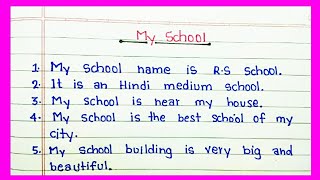 My School
1. My school name is R.S School.
2. It is an Hindi medium school.
3. My school is near my house.
4. My school is the best school of my
city.
5. My school building is very big and
beautiful.